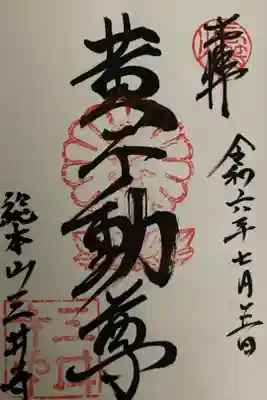 奉拝
令和六年七月五日
黄不動尊
総本山三井寺